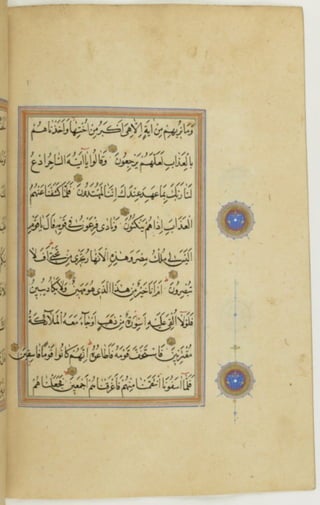 وَمَا نُرِيهِمْ مِنْ آيَةٍ إِلَّا هِيَ أَكْبَرُ مِنْ أُخْتِهَا وَأَخَذْنَاهُمْ
بِالْعَذَابِ لَعَلَّهُمْ يَرْجِعُونَ وَقَالُوا يَا أَيُّهَ السَّاحِرُ ادْعُ
لَنَا رَبَّكَ بِمَا عَهِدَ عِنْدَكَ إِنَّنَا لَمُهْتَدُونَ فَلَمَّا كَشَفْنَا عَنْهُمُ
الْعَذَابَ إِذَا هُمْ يَنْكُثُونَ وَنَادَى فِرْعَوْنُ فِي قَوْمِهِ قَالَ يَا قَوْمِ
أَلَيْسَ لِي مُلْكُ مِصْرَ وَهَذِهِ الْأَنْهَارُ تَجْرِي مِنْ تَحْتِي أَفَلَا
تُبْصِرُونَ أَمْ أَنَا خَيْرٌ مِنْ هَذَا الَّذِي هُوَ مَهِينٌ وَلَا يَكَادُ يُبِينُ
فَلَوْلَا أُلْقِيَ عَلَيْهِ أَسْوِرَةٌ مِنْ ذَهَبٍ أَوْ جَاءَ مَعَهُ الْمَلَائِكَةُ
مُقْتَرِنِينَ فَاسْتَخَفَّ قَوْمَهُ فَأَطَاعُوهُ إِنَّهُمْ كَانُوا قَوْمًا فَاسِقِينَ
فَلَمَّا آسَفُونَا انْتَقَمْنَا مِنْهُمْ فَأَغْرَقْنَاهُمْ أَجْمَعِينَ فَجَعَلْنَاهُمْ